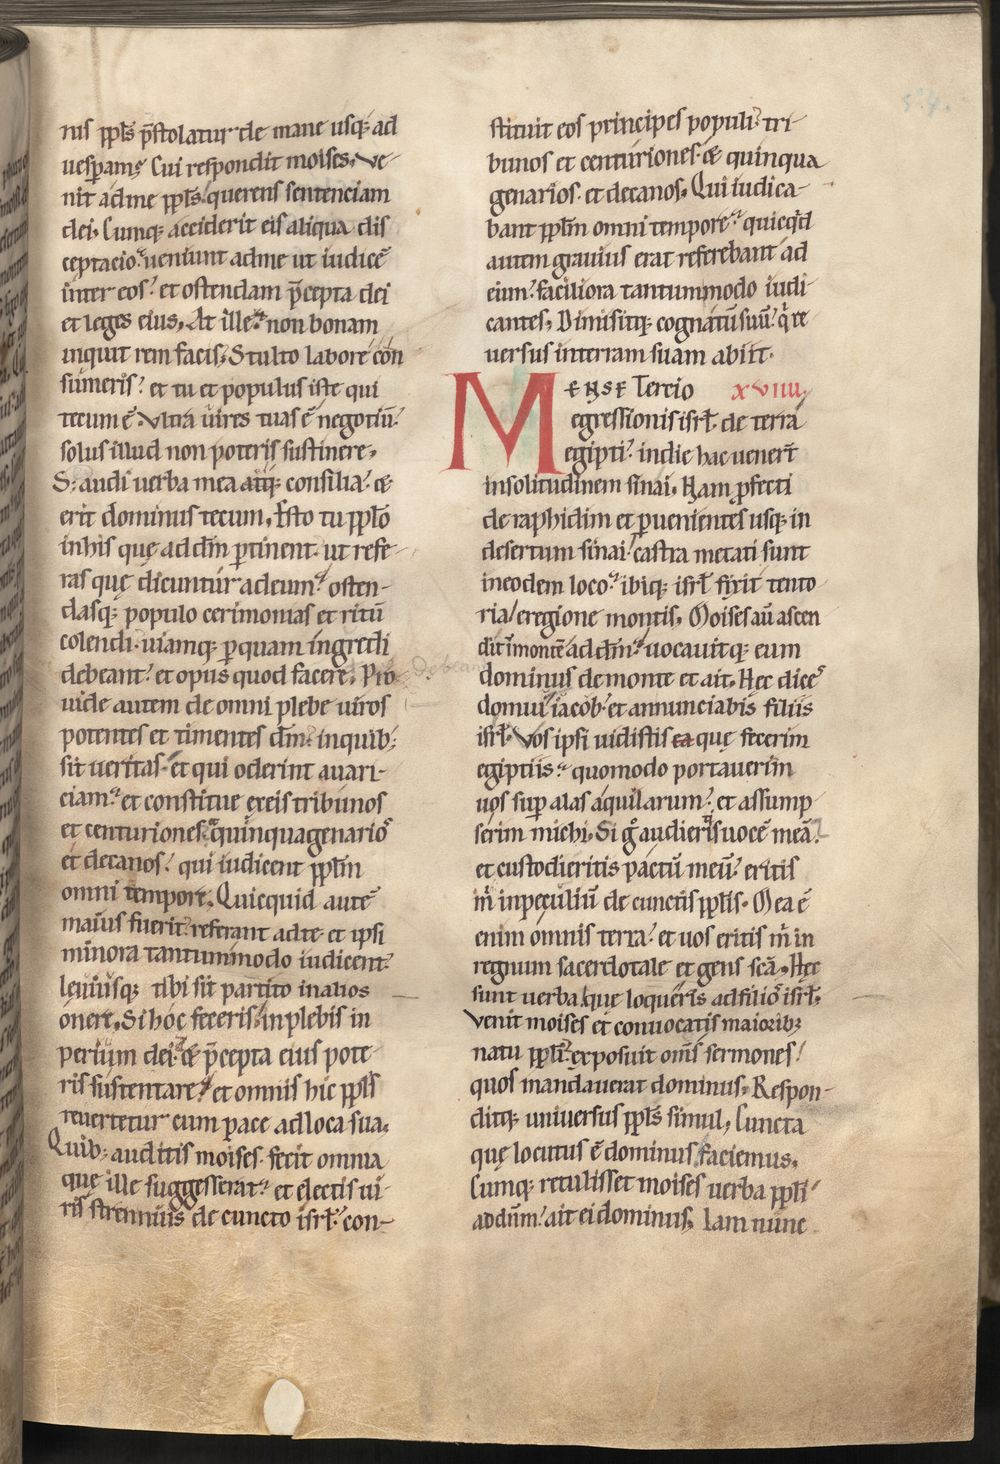 nis ppl̄s p̄stolatur de mane usq; ad
uesꝑam; Cui respondit moises. Ve-
nit ad me ppl̄s querens sentenciam
dei. Cumq; acciderit eis aliqua dis
ceptacio. ueniunt ad me ut iudicē
inter eos. et ostendam p̄cepta dei
et leges eius. At ille. non bonam
inquit rem facis. Stulto labore con
sumeris. et tu et populus iste qui
tecum ē. Vltra uires tuas ē negotiū.
solus illud non poteris sustinere.
S; audi uerba mea atq; consilia. &
erit dominus tecum. Esto tu pplo
in his quę ad dm̄ ꝑtinent. ut refe-
ras quę dicuntur ad eum. osten-
dasq; populo cerimonias et ritū
colendi. uiamq; ꝑ quam ingredi
debeant. et opus quod facere. Pro-
uide autem de omni plebe uiros
potentes et timentes dm̄. in quib;
sit ueritas. et qui oderint auari-
ciam. et constitue ex eis tribunos
et centuriones. & quinquagenarios
et decanos. qui iudicent pplm̄
omni tempore. Quicquid autē
maius fuerit. referant ad te et ipsi
minora tantummodo iudicent.
leuiusq; tibi sit partito in alios
onere. Si hoc feceris. inplebis in
perium dei. & p̄cepta eius pote
ris sustentare. et omnis hic ppl̄s
reuertetur cum pace ad loca sua.
Quib; auditis moises. fecit omnia
quę ille suggesserat. et electis ui-
ris strennuis de cuncto isrl̄. con-
stituit eos principes populi. tri-
bunos et centuriones. & quinqua
genarios. et decanos. Qui iudica-
bant pplm̄ omni tempore. quicqd
autem grauius erat referebant ad
eum. faciliora tantummodo iudi-
cantes. Dimisitq; cognatū suū. q̇ re
uersus in terram suam abiit.
MENSE Tercio XVIIII.
egressionis isrl̄. de terra
egipti. in die hac uener̄t
in solitudinem sinai. Nam ꝓfecti
de raphidim et ꝑuenientes usq; in
desertum sinai. castra metati sunt
in eodem loco. ibiq; isrl̄ fixit tento
ria e regione montis. Moises aū ascen
dit in montē ad dm̄. uocauitq; eum
dominus de monte et ait. Hec dices
domui iacob. et annunciabis filiis
isrl̄. Vos ipsi uidistis ea que fecerim
egiptiis. quomodo portauerim
uos suꝑ alas aquilarum. et assump
serim michi. Si g̊ audieritis uocē meā.
et custodieritis pactū meū. eritis
m̄ in peculiū de cunctis ppl̄is. Mea ē
enim omnis terra. et uos eritis m̄ in
regnum sacerdotale et gens scā. Hec
sunt uerba que loqueris ad filios isrl̄.
Venit moises et conuocatis maiorib;
natu ppl̄i. exposuit om̄s sermones
quos mandauerat dominus. Respon-
ditq; uniuersus ppl̄s simul. Cuncta
quę locutus ē dominus faciemus.
Cumq; retulisset moises uerba ppl̄i
ad dn̄m. ait ei dominus. Iam nunc